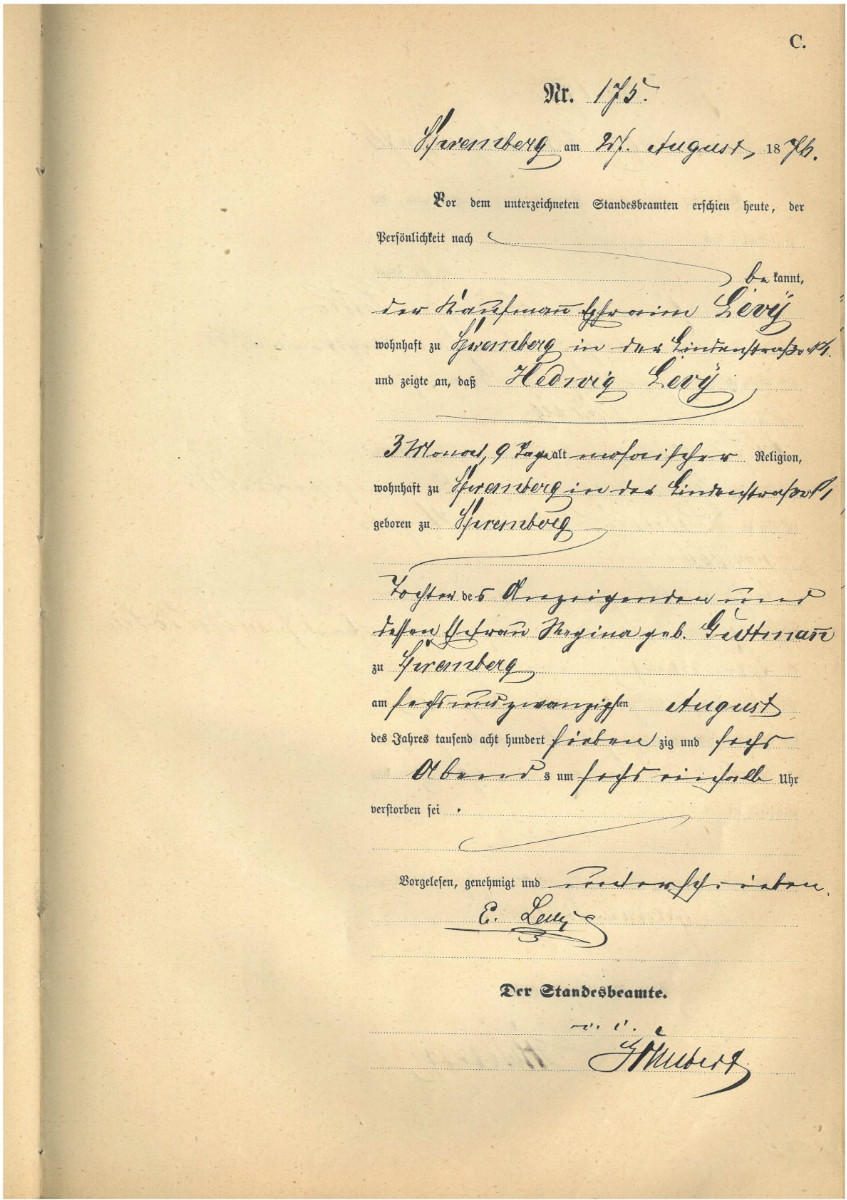 C.
Nr. 175.
Spremberg am 27. August, 1876.
Vor dem unterzeichneten Standesbeamten erschien heute, der
Persönlichkeit nach
be kannt,
der Kaufmañ Ephraim Levÿ
wohnhaft zu Spremberg in der Lindenstraße
und zeigte an, daß Hedwig Levÿ
3 Monat, 9 Tage alt mosaischer Religion,
wohnhaft zu Spremberg in der Lindenstraße
geboren zu Spremberg
Tochter des Anzeigenden und
dessen Ehefrau Regina geb. Guttmañ
zu Spremberg
am sechsundzwanzigsten August
des Jahres tausend acht hundert sieben zig und sechs
Abend s um sechs einhalb Uhr
verstorben sei .
Vorgelesen, genehmigt und unterschrieben.
E. Levy
Der Standesbeamte.